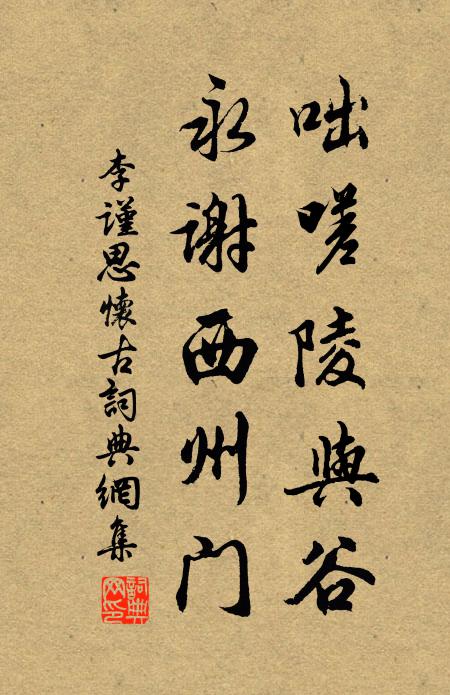 咄嗟陵與谷
永谢西州门
李謹思懷古詞典網集
詞典网印